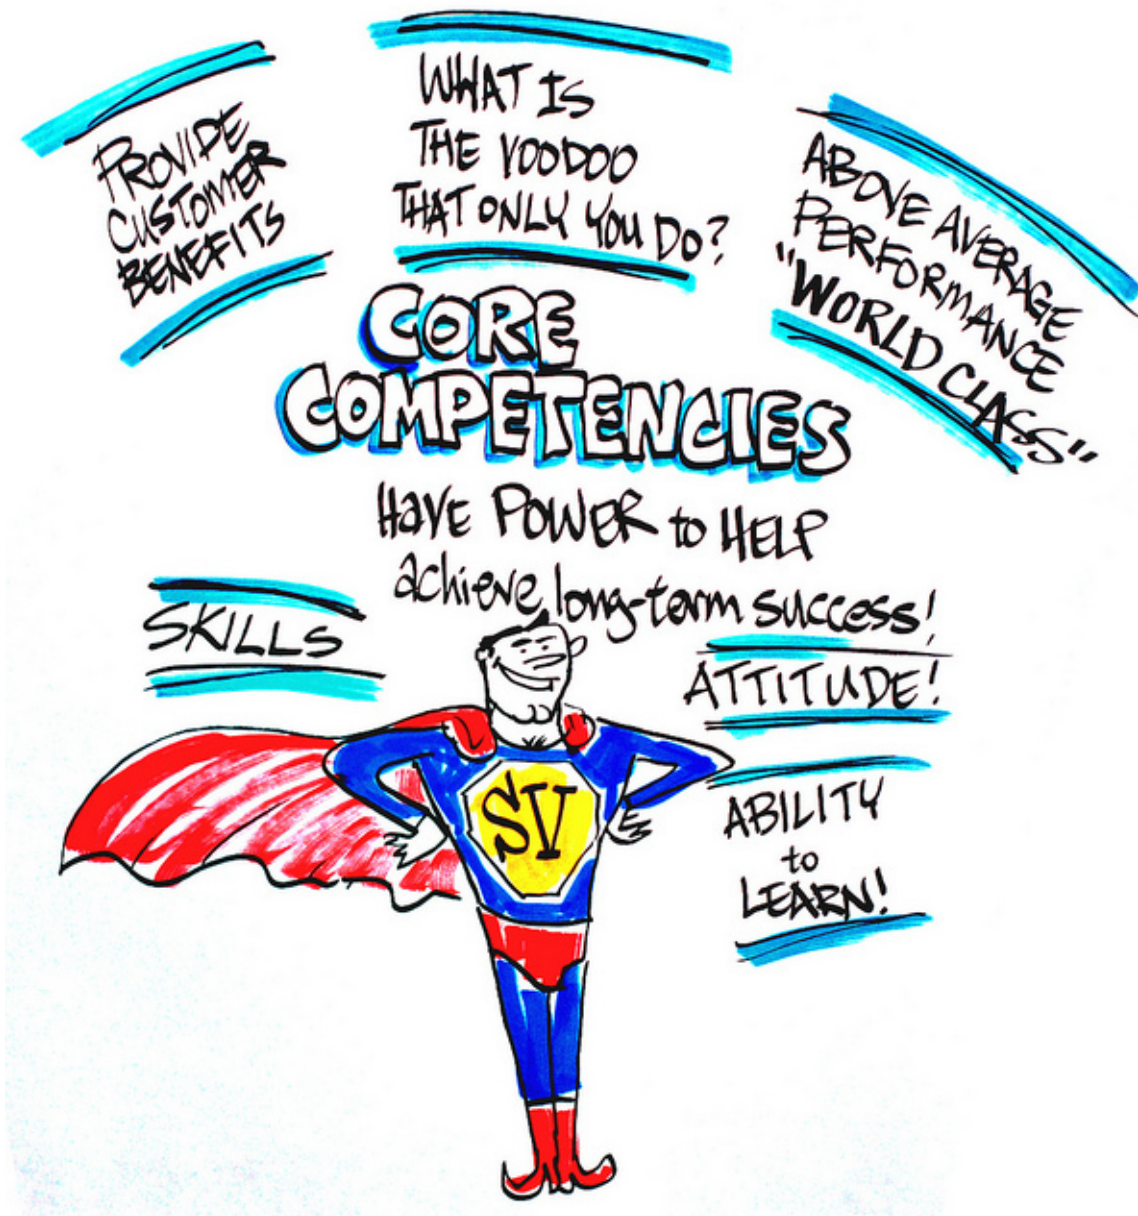 PROVIDE
CUSTOMER
BENEFITS
WHAT IS
THE VOODOO
THAT ONLY YOU DO?
ABOVE AVERAGE
PERFORMANCE
"WORLD CLASS"
CORE
COMPETENCIES
HAVE POWER to HELP
achieve long-term success!
SKILLS
ATTITUDE!
ABILITY
to
LEARN!
SV